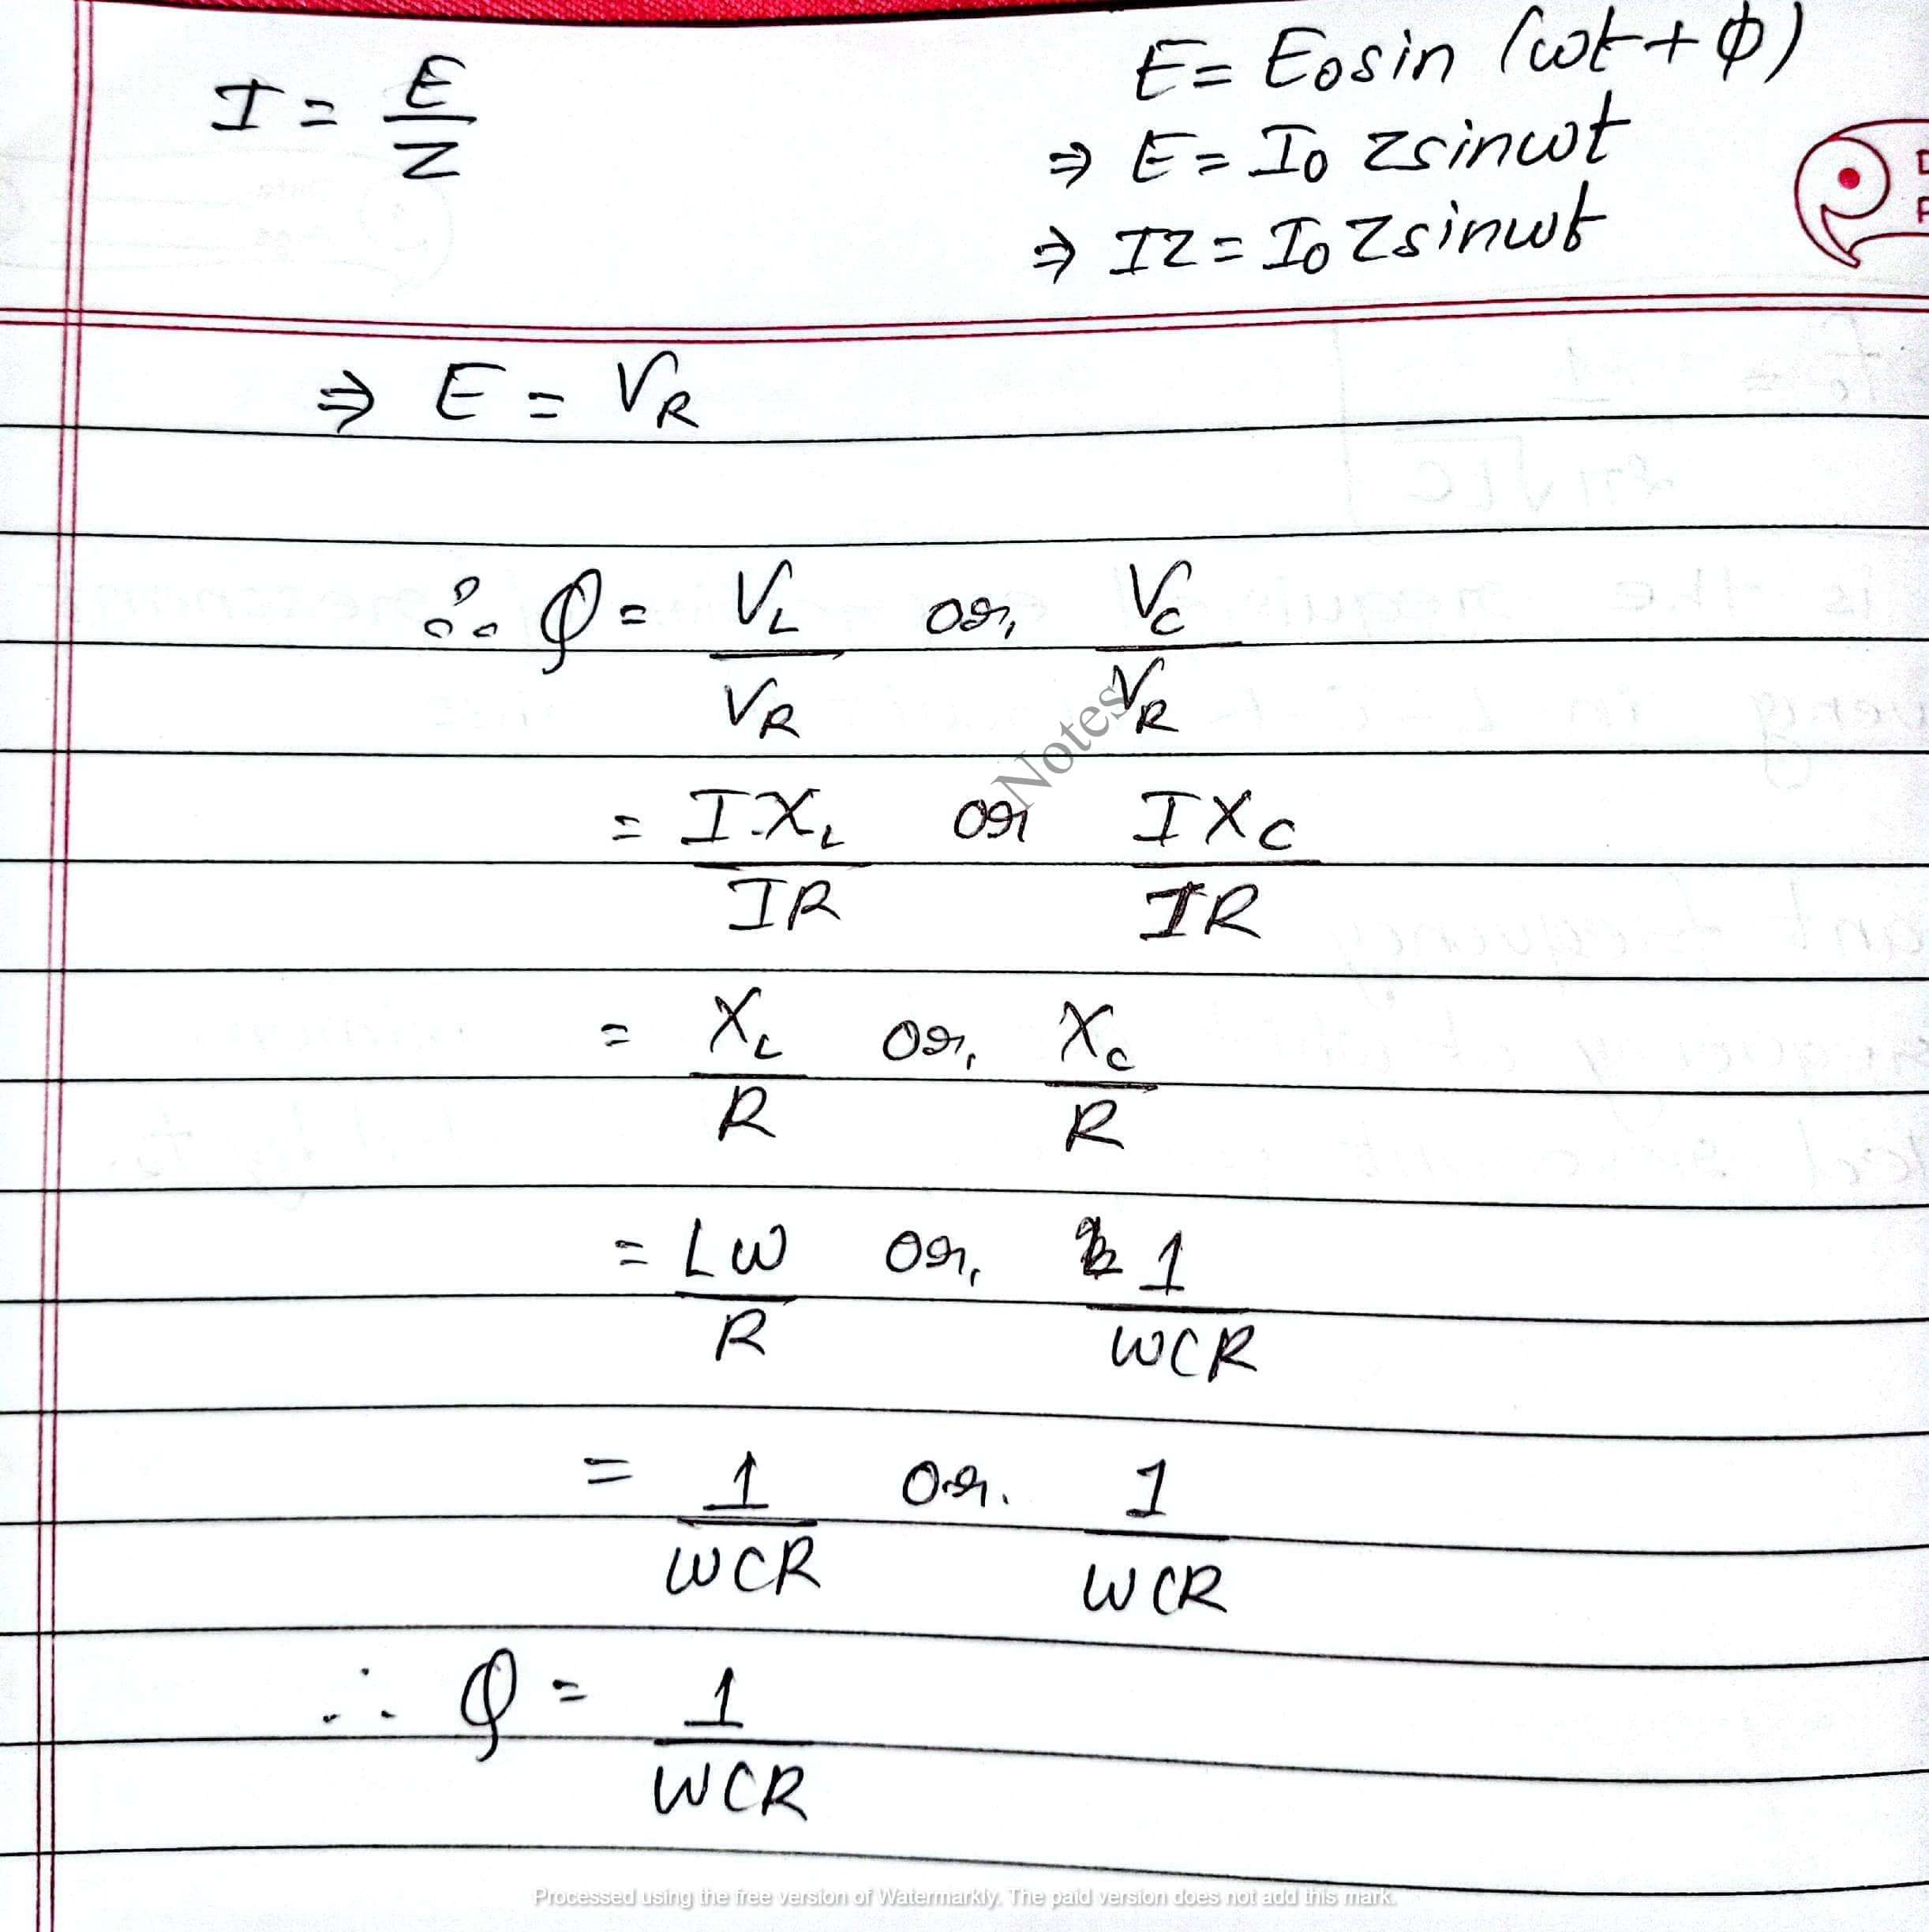 I = E/Z
E = E₀ sin (ωt + φ)
⇒ E = I₀ Z sinωt
⇒ IZ = I₀ Z sinωt
⇒ E = V_R
∴ Q = V_L/V_R or, V_C/V_R
Notes
= I.X_L/IR or IX_C/IR
= X_L/R or, X_C/R
= Lω/R or, 1/ωCR
= 1/ωCR or. 1/ωCR
∴ Q = 1/ωCR
Processed using the free version of Watermarkly. The paid version does not add this mark.